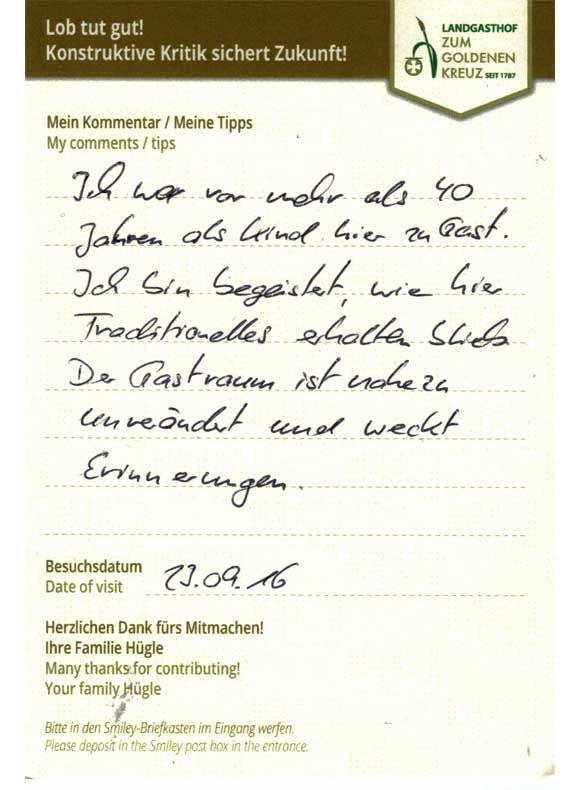 Lob tut gut!
Konstruktive Kritik sichert Zukunft!
LANDGASTHOF
ZUM
GOLDENEN
KREUZ SEIT 1787
Mein Kommentar / Meine Tipps
My comments / tips
Ich war vor mehr als 40
Jahren als Kind hier zu Gast.
Ich bin begeistert, wie hier
Traditionelles erhalten blieb
Der Gastraum ist nahezu
unverändert und weckt
Erinnerungen.
Besuchsdatum
Date of visit 23.09.16
Herzlichen Dank fürs Mitmachen!
Ihre Familie Hügle
Many thanks for contributing!
Your family Hügle
Bitte in den Smiley-Briefkasten im Eingang werfen.
Please deposit in the Smiley post box in the entrance.